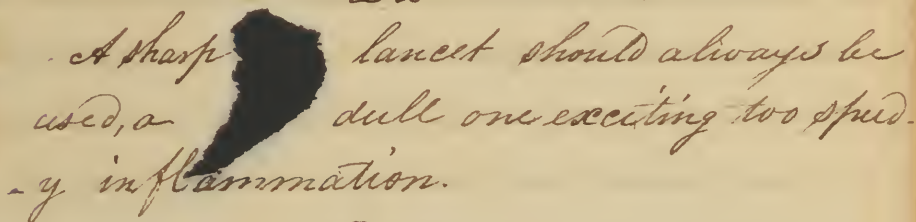 A sharp lancet should always be
used, a dull one exciting too speed-
-y inflammation.